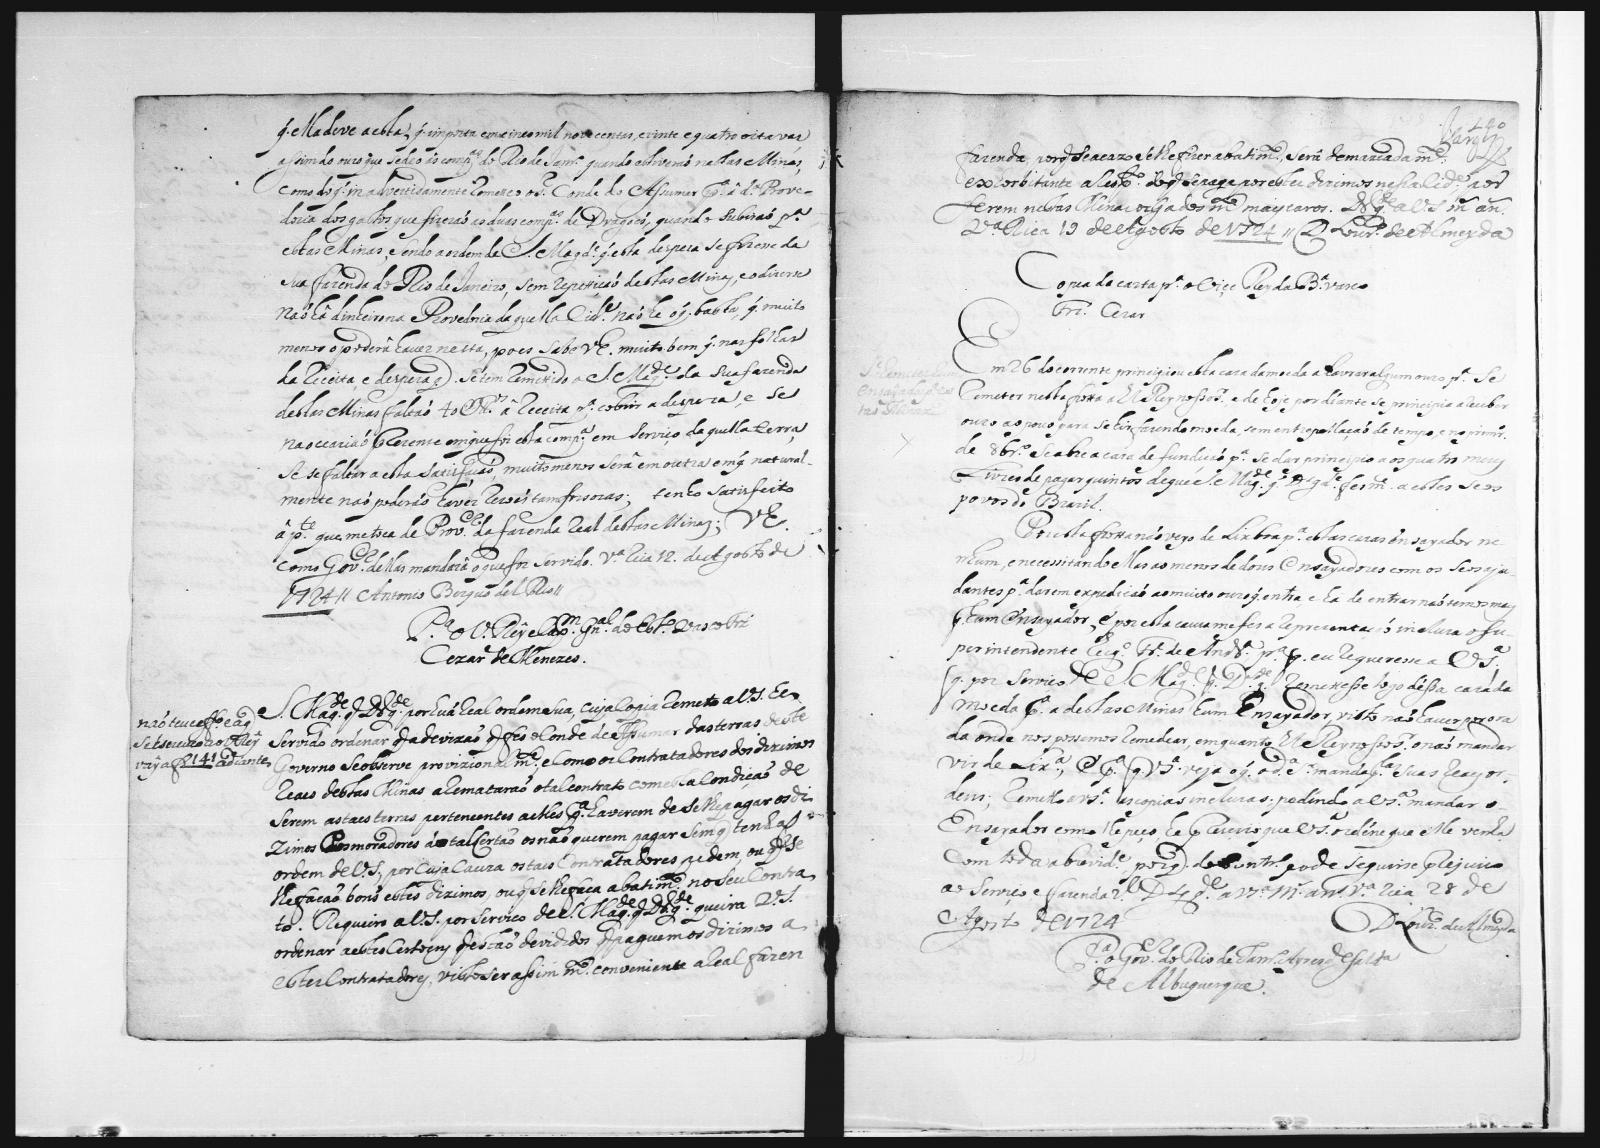 q̃. Ma deve a esta, q̃. importa em cinco mil nove centas, e vinte e quatro oitavas
assim do ouro que se deo ás comp.as do Rio de Janr.o quando estiveraõ nestas Minas,
como do q̃. inadvertidamente o s.r Conde de Assumar p.a a d.a Prove-
doria dos gastos que fizeraõ as duas comp.as de Dragoés, quando subiraõ p.a
estas Minas, e sendo a ordem de S. Mag.de q̃. esta despeza se fizece da
sua fazenda do Rio de Janeiro, sem repetiçaõ destas Minas, e o diserse
naõ há dinheiro na Provedoria daquella Cid.e naõ he o q̃. basta, q̃. muito
menos o poderá haver nesta, pois sabe VE. muito bem q̃. nas folhas
da Receita, e despeza q̃ se tem remetido a S. Mag.de da sua fazenda
destas Minas faltaõ á Receita p.a cobrir a despeza, e se
na occaziaõ prezente em que foi esta comp.a em serviço daquella terra,
se faltar a esta satisfaçaõ, muito menos será em outra em q̃ natural-
mente naõ poderão haver rezões tam forsozas; tenho satisfeito
á p.te que me toca de Prov.or da fazenda Real destas Minas; VE.
como Gov.or dellas mandará o que for servido. V.a Rica 12. de Agosto de
1724 // Antonio Berquó del Rio //
P.a o V. Rey e Cap.m Gn.al do Est.o Vasco Frz
Cezar de Menezes.
naõ teve effo. e aq
se escreveo ao V. Rey
vay a f 141 adiante
S. Mag.de q̃ D.s g.de por huã Real ordem sua, cuja copia remeto a V.S. he
servido ordenar q̃ a devizaõ q̃ fes o Conde de Assumar das terras deste
Governo se observe provizionalm.te; e como os Contratadores dos dizimos
Reaes destas Minas aremataraõ o tal contrato com a condiçaõ de
serem as taes terras pertencentes a elles p.a haverem de se lhe pagar os di-
zimos e os moradores do tal Certaõ os naõ querem pagar sem q̃ tenhaõ
ordem de V.S., por cuja cauza os taes Contratadores pedem, ou q̃ se
lhe façaõ bons estes dizimos, ou q̃ se lhe faça abatim.to no seu Contra-
to. Requeiro a V.S. por serviço de S. Mag.de q̃ D.s g.de queira V.S.
ordenar aestes Certoens q̃ estaõ devididos q̃ paguem os dizimos a
estes Contratadores, visto ser assim m.to conveniente a Real fazen
140
fazenda, porq̃ se acazo se lhe fizer abatim.to, será demaziada m.te
exorbitante
serem nestas Minas m.to mais caros. D.s g.de a V.S. m. an.
V.a Rica 19 de Agosto de 1724 // D. Lour.o de Almeyda
Copia da carta p.a o Vice Rey da B.a vasco
Frz. Cezar
Em 26 do corrente principiou esta caza da moeda a lavrar algum ouro p.a se
remeter nesta frota a El Rey nosso s.r, e de hoje por diante se principia a receber
ouro ao povo para se hir fazendo moeda, sem entrepollaçaõ de tempo, e no primr.o
de 8br.o se abre a caza de fundiçaõ p.a se dar principio a os quatro mezes
Livres de pagar quintos de que S. Mag.de q̃. D.s g.de fes m. a estes seos
povos do Brazil.
Por esta frota naõ veyo de Lixboa p.a estas cazas ensayador ne-
nhum, e necessitando ellas ao menos de dous Ensayadores com os seos aju-
dantes p.a darem expediçaõ ao muito ouro q̃. entra e ha de entrar naõ temos mais
q̃. hum Ensayador, e por esta cauza me fes a reprezentaçaõ incluza o su-
perintendente Eug.o Fr.e de Andr.e p.a q̃. eu requeresse a VS.a
q̃. por serviço de S. Mag.de q̃. D.s g.de remetesse logo dessa caza da
moeda p.a a destas Minas hum Ensayador, visto naõ haver por ora
da onde nos possamos remediar, em quanto El Rey nosso s.r o naõ mandar
vir de Lix.a, e p.a q̃. VS.a veja o q̃. o d.o s.r manda p.a suas Reays or-
dens; remetto a VS.a as copias incluzas; pedindo a VS.a mandar o
Ensayador como lhe peço, he precizo que VS.a ordene que elle venha
com toda a brevid.e porq̃ do contr.o pode seguirse prejuizo
ao serviço e fazenda R.l D.s g.de a VS.a m. an.s V.a Rica 28 de
Agosto de 1724
D. Lour.o de Almeyda
P.a o Gov.or do Rio de Janr.o Ayres de Salda
de Albuquerque.